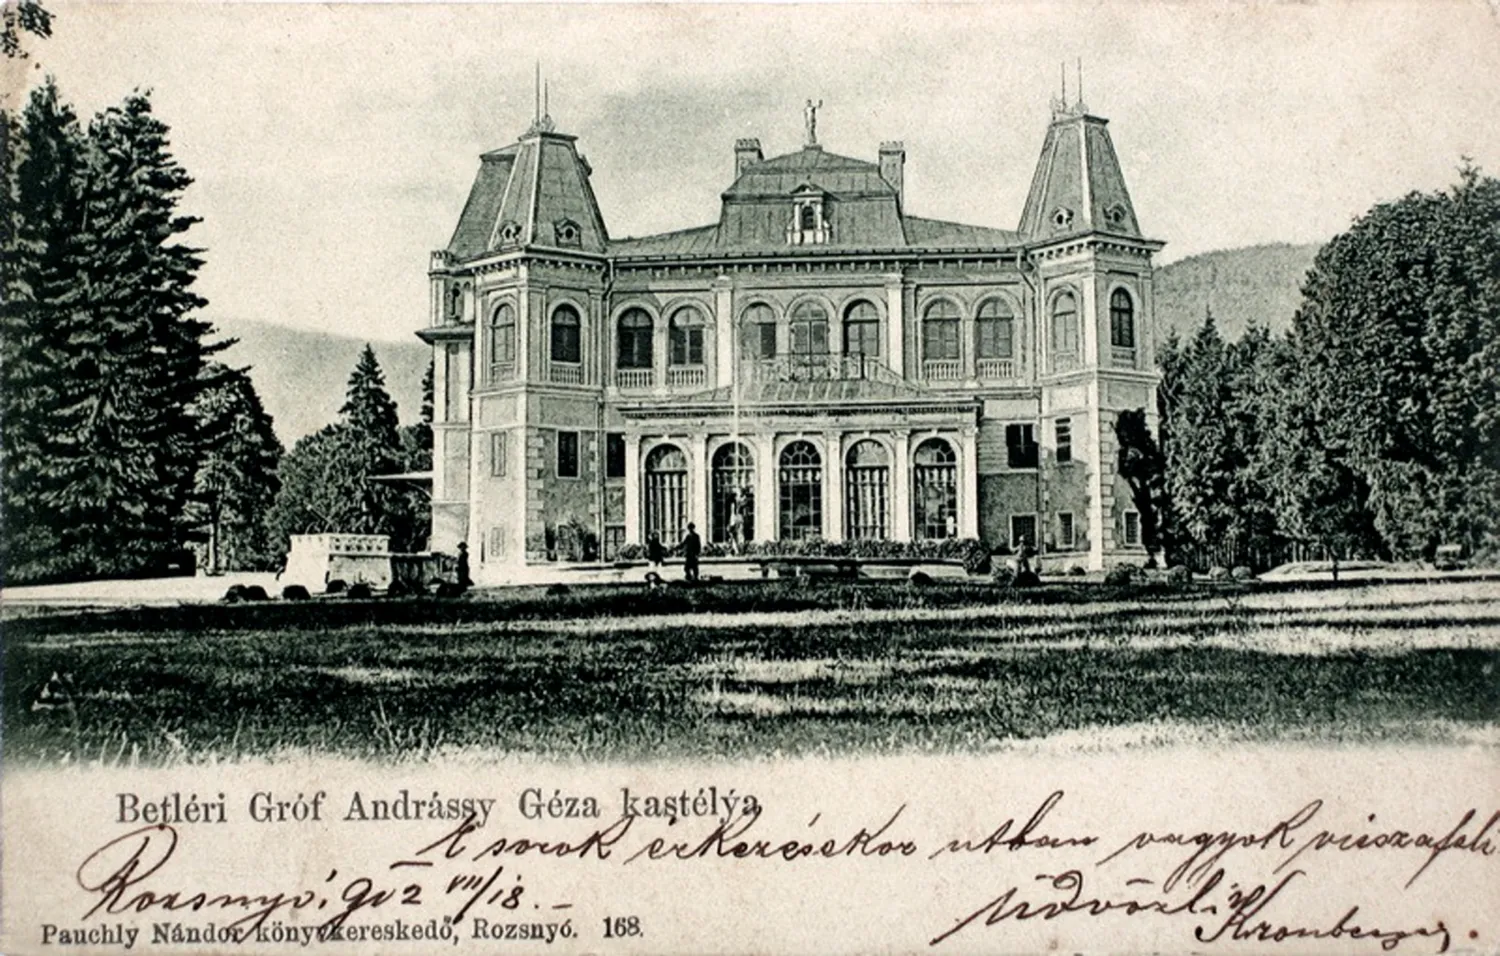 Betléri Gróf Andrássy Géza kastélya
E sorok érkezésekor utban vagyok visszafelé
Rozsnyó, 902 VII/18.
Üdvözli Kronberger
Pauchly Nándor könyvkereskedő, Rozsnyó. 168.